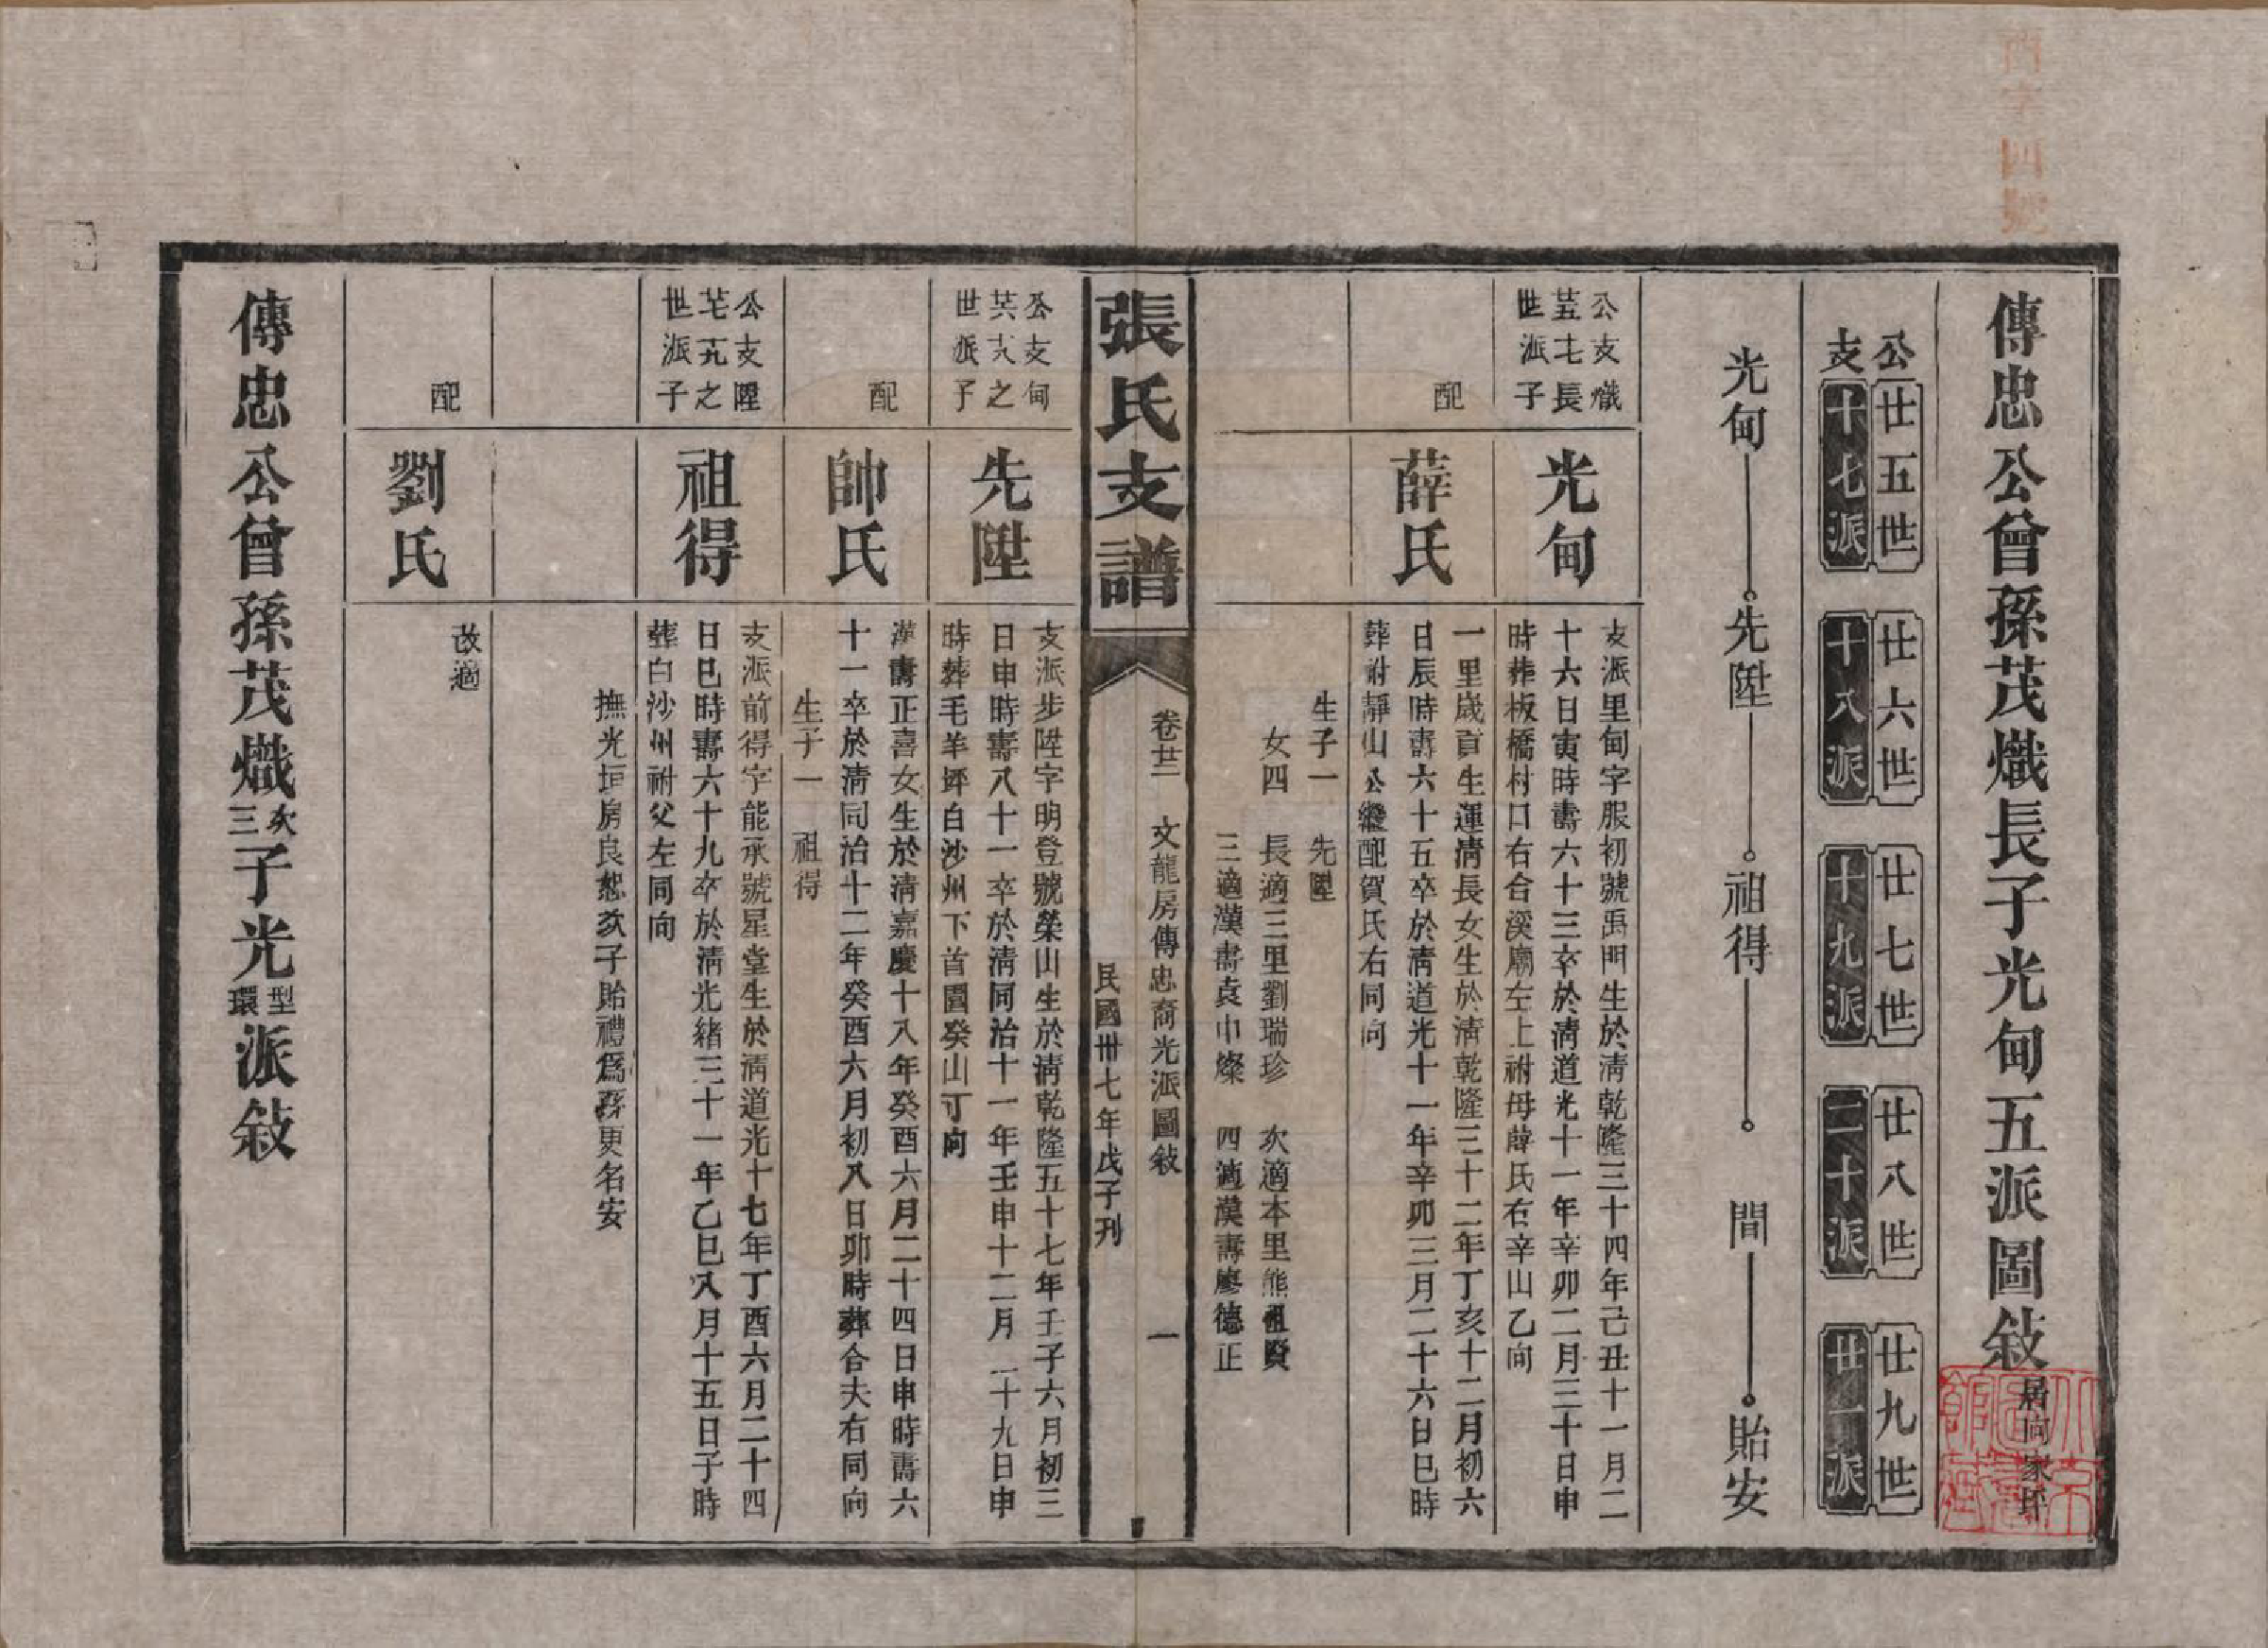 傳忠公曾孫茂熾長子光甸五派圖敍居向家坪
公廿五世 廿六世 廿七世 廿八世 廿九世
支十七派 十八派 十九派 二十派 廿一派
光甸 先陞 祖得 間 貽安
公支熾
廿五十七長
世派子
光甸
支派里甸字服初號禹門生於淸乾隆三十四年己丑十一月二
十六日寅時壽六十三卒於淸道光十一年辛卯二月三十日申
時葬板橋村口右合溪廟左上祔母薛氏右辛山乙向
配
薛氏
一里歲貢生運淸長女生於淸乾隆三十二年丁亥十二月初六
日辰時壽六十五卒於淸道光十一年辛卯三月二十六日巳時
葬祔靜山公繼配賀氏右同向
生子一 先陞
女四 長適三里劉瑞珍 次適本里熊祖賢
三適漢壽袁巾燦 四適漢壽廖德正
張氏支譜
卷廿三 文龍房傳忠裔光派圖敍 一
民國卅七年戊子刊
公支甸
廿六十八之
世派子
先陞
支派步陞字明登號榮山生於淸乾隆五十七年壬子六月初三
日申時壽八十一卒於淸同治十一年壬申十二月二十九日申
時葬毛羊坪白沙州下首園癸山丁向
配
帥氏
漢壽正喜女生於淸嘉慶十八年癸酉六月二十四日申時壽六
十一卒於淸同治十二年癸酉六月初八日卯時葬合夫右同向
生子一 祖得
公支陞
廿七十九之
世派子
祖得
支派前得字能承號星堂生於淸道光十七年丁酉六月二十四
日巳時壽六十九卒於淸光緒三十一年乙巳八月十五日子時
葬白沙州祔父左同向
撫光垣房良恕次子貽禮爲孫更名安
配
劉氏
改適
傳忠公曾孫茂熾次三子光型環派敍